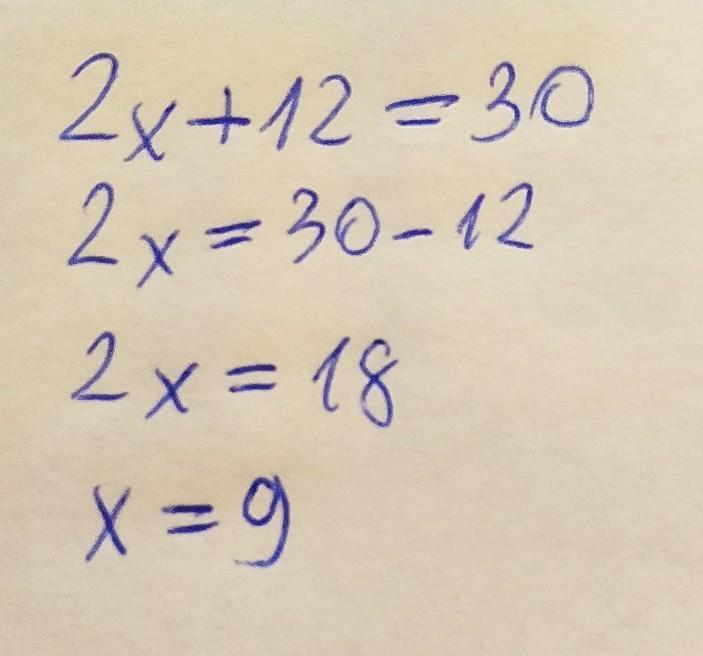 2x+12=30
2x=30-12
2x=18
x=9